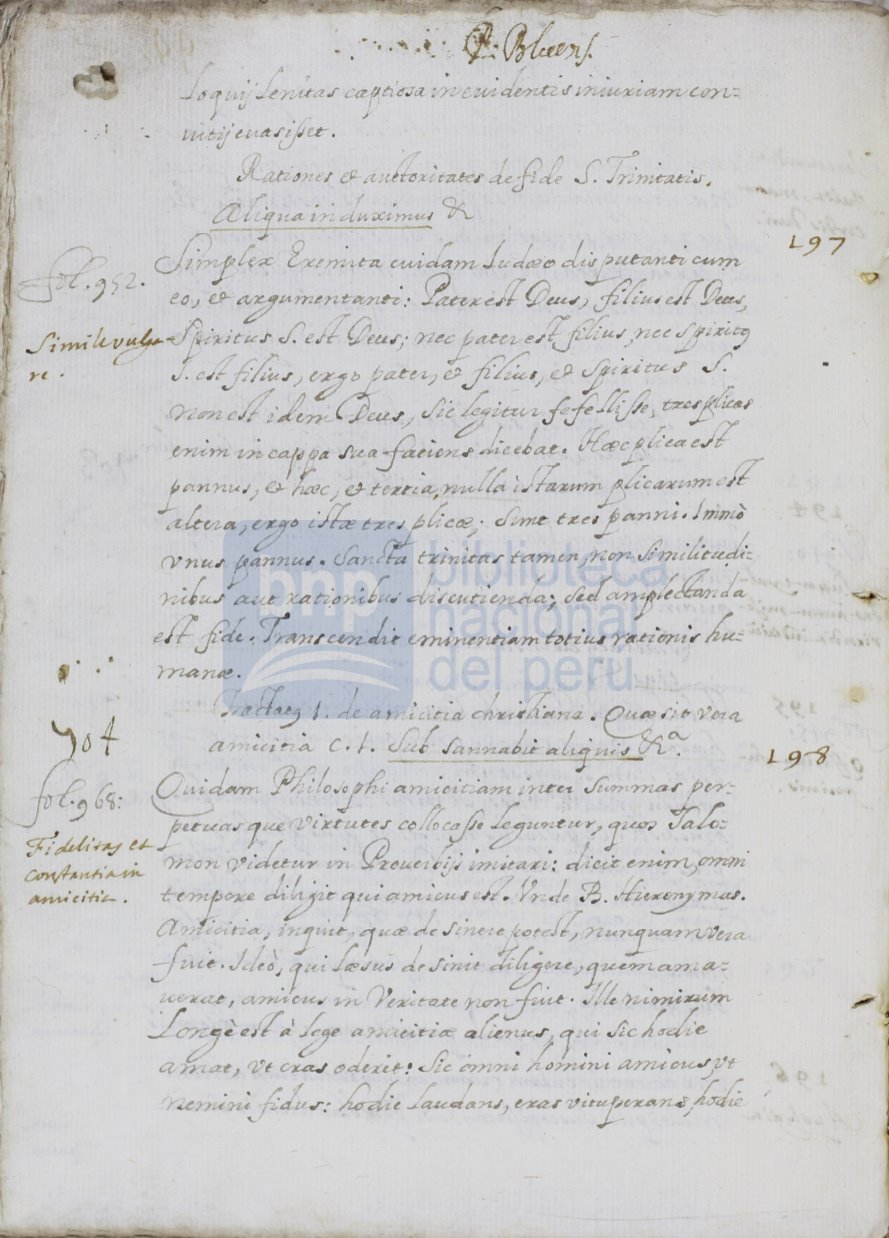 P. Blæens.
loquij lenitas captiosa in euidentis iniuriam con=
uitij euasisset.
Rationes & auctoritates de fide S. Trinitatis.
Aliqua induximus &
197
fol. 952.
Simile vulga
re.
Simplex Eremita cuidam Iudæo disputanti cum
eo, et argumentanti: Pater est Deus, filius est Deus,
Spiritus S. est Deus; nec pater est filius, nec spirit9
S. est filius, ergo pater, et filius, et Spiritus S.
non est idem Deus, sic legitur fefellisse, tres plicas
enim in cappa sua faciens dicebat. Hæc plica est
pannus, et hæc, et tertia, nulla istarum plicarum est
altera, ergo istæ tres plicæ; sunt tres panni. Immò
vnus pannus. Sancta trinitas tamen, non similitudi=
nibus aut rationibus discutienda; sed amplectanda
est fide. Transcendit eminentiam totius rationis hu=
manæ.
biblioteca
nacional
del perú
bnp
Tractat9 1. de amicitia christiana. Quæ sit vera
amicitia c. 1. Sub sannabit aliquis &a.
704
198
fol. 968:
Fidelitas et
constantia in
amicitia.
Quidam Philosophi amicitiam inter summas per=
petuasque virtutes collocasse leguntur, quos Salo=
mon videtur in Prouerbijs imitari: dicit enim, omni
tempore diligit qui amicus est. Vnde B. Hieronymus.
Amicitia, inquit, quæ desinere potest, nunquam vera
fuit. Ideò, qui læsus desinit diligere, quem ama=
uerat, amicus in Veritate non fuit. Ille nimirum
Longè est à lege amicitiæ alienus, qui sic hodie
amat, vt cras oderit: sic omni homini amicus vt
nemini fidus: hodie laudans, cras vituperans, hodie